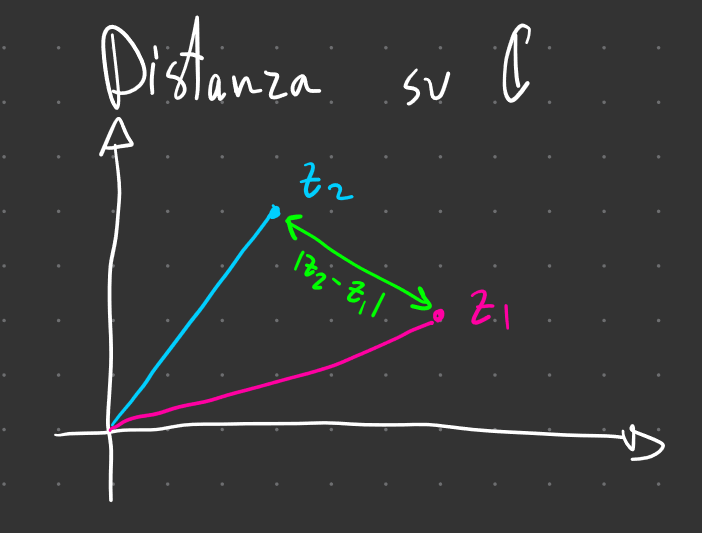 Distanza su ℂ
z₂
|z₂ - z₁|
z₁